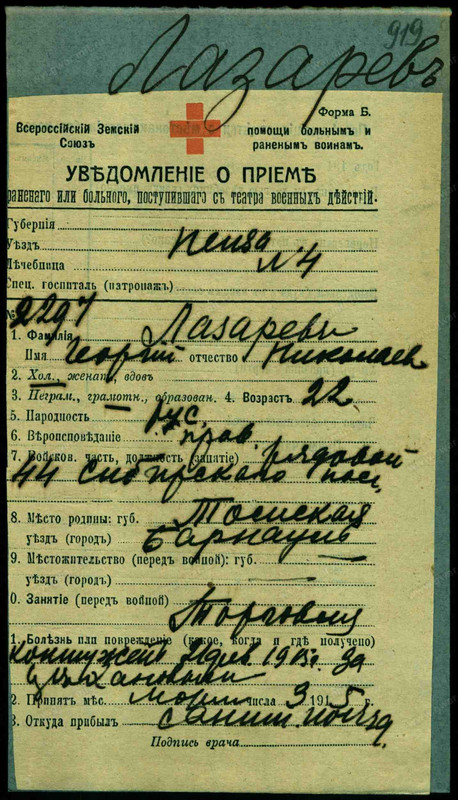 919
Лазаревъ
Форма Б.
Всероссійскій Земскій Союзъ
помощи больнымъ и раненымъ воинамъ.
УВѢДОМЛЕНІЕ О ПРІЕМѢ
раненаго или больного, поступившаго съ театра военныхъ дѣйствій.
Губернія
Уѣздъ Пенза
Лѣчебница №4
Спец. госпиталь (патронажъ)
2297
1. Фамилія Лазаревъ
Имя Георгій отчество Николаев
2. Хол., женат., вдовъ
3. Неграм., грамотн., образован. 4. Возрастъ 22
5. Народность рус
6. Вѣроисповѣданіе прав.
7. Войсков. часть, должность (занятіе) рядовой
44 Сибирскаго
8. Мѣсто родины: губ. Томская
уѣздъ (городъ) Барнаулъ
9. Мѣстожительство (передъ войной): губ. —
уѣздъ (городъ) —
0. Занятіе (передъ войной) Торговецъ
1. Болѣзнь или поврежденіе (какое, когда и гдѣ получено)
контуженъ фев 1915г.
2. Принятъ мѣс. числа 3 1915 г.
3. Откуда прибылъ санит. поѣзд.
Подпись врача